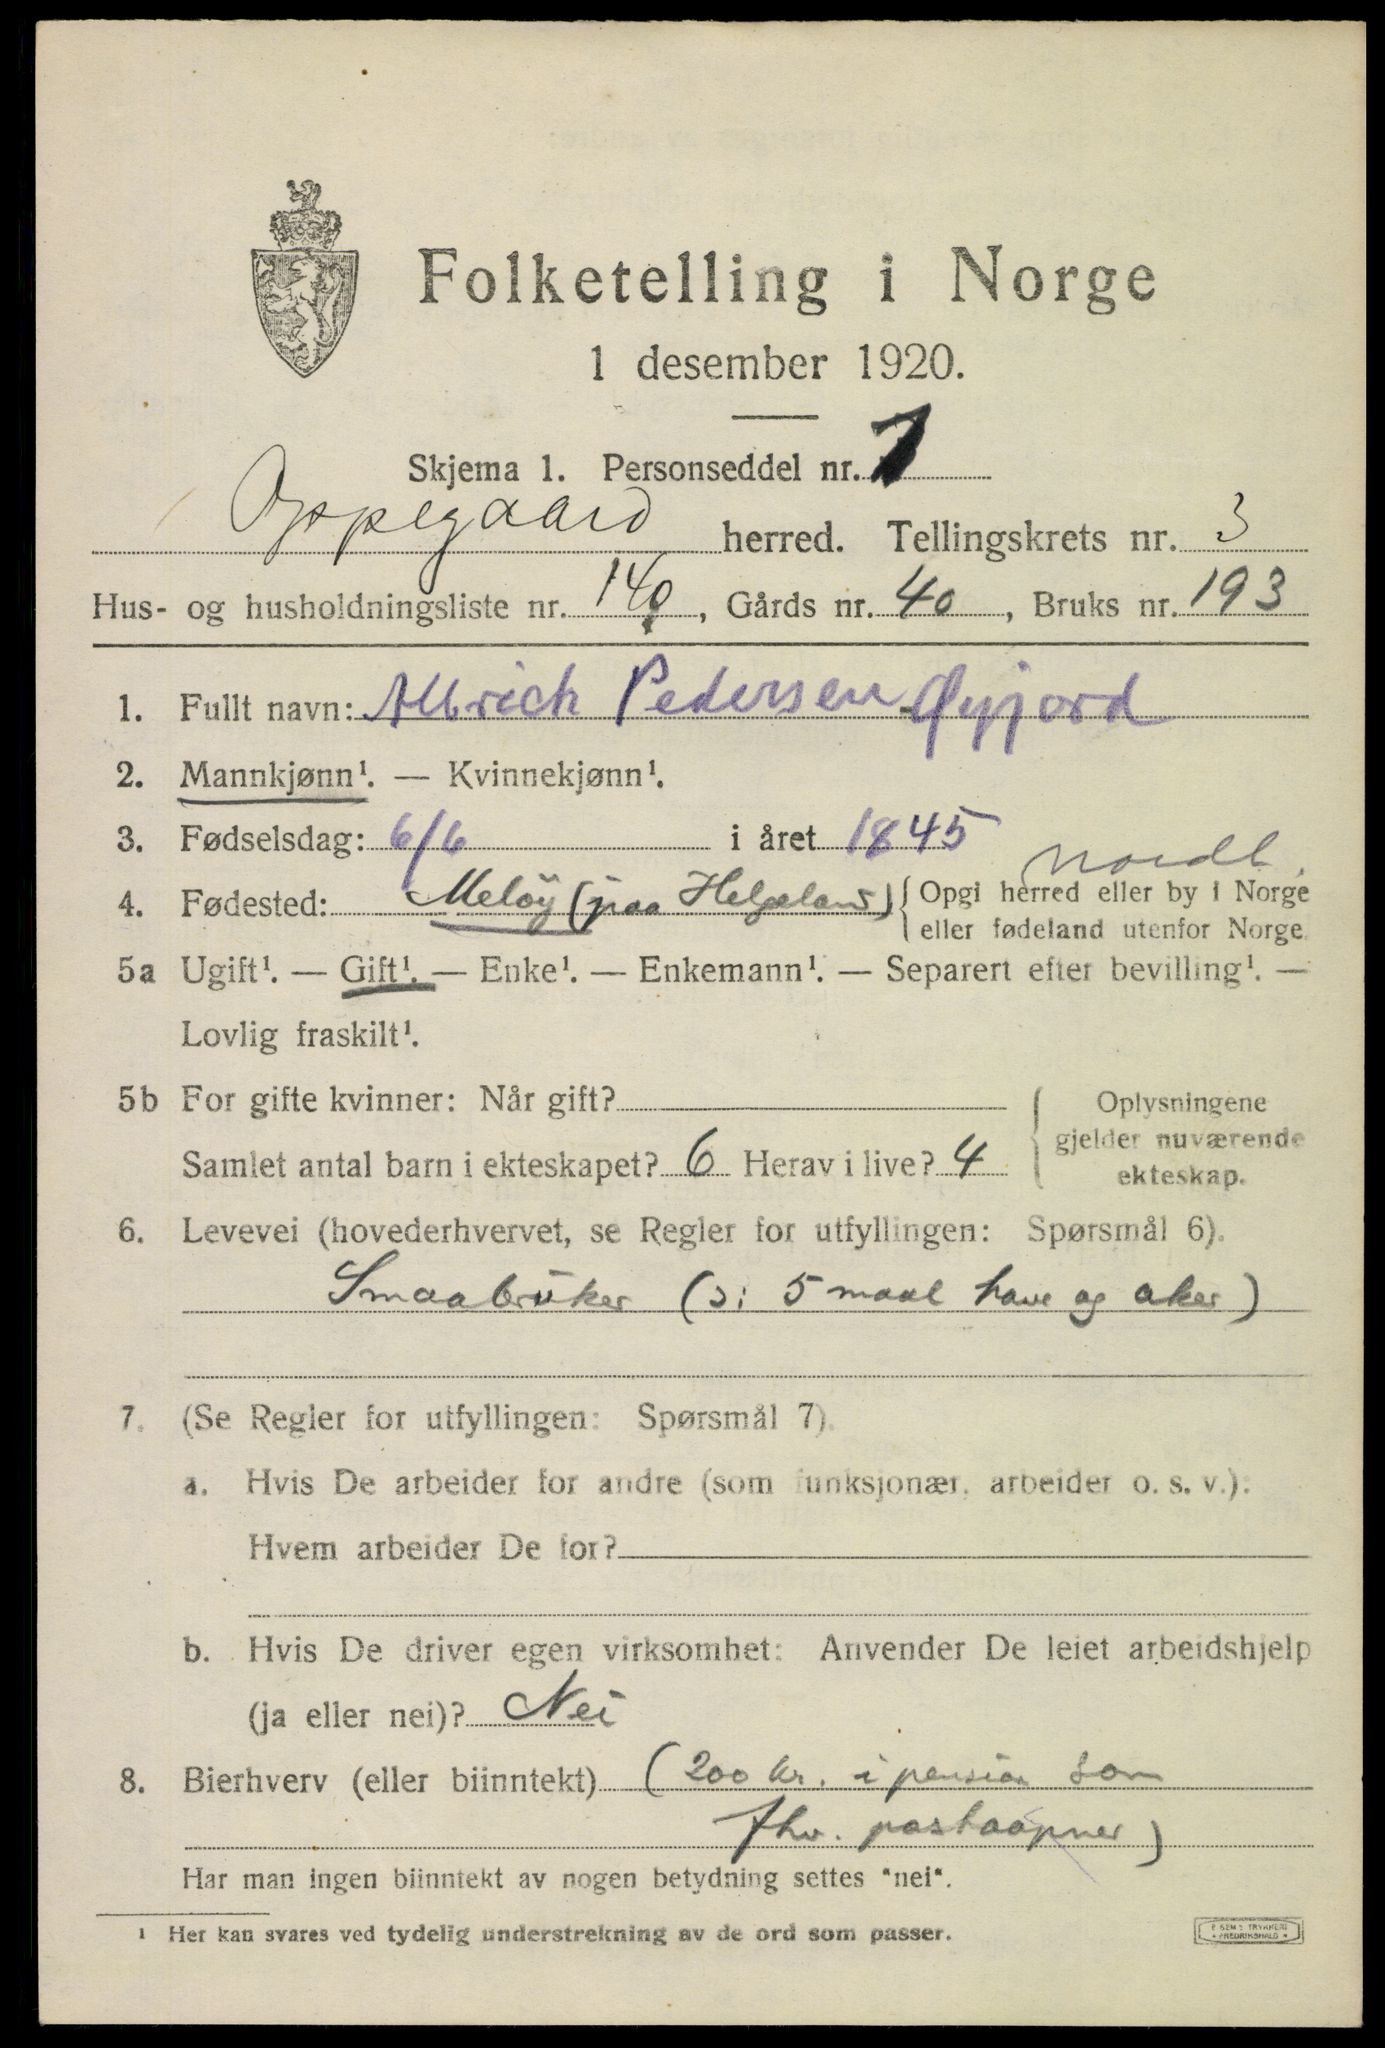 Folketelling i Norge
1 desember 1920.
Skjema 1. Personseddel nr. 1
Oppegaard herred. Tellingskrets nr. 3
Hus- og husholdningsliste nr. 140, Gårds nr. 40, Bruks nr. 193
1. Fullt navn: Albrich Pedersen Øyjord
2. Mannkjønn¹. — Kvinnekjønn¹.
3. Fødselsdag: 6/6 i året 1845
Nordl.
4. Fødested: Meløy (paa Helgeland) { Opgi herred eller by i Norge
eller fødeland utenfor Norge.
5a Ugift¹. — Gift¹. — Enke¹. — Enkemann¹. — Separert efter bevilling¹. —
Lovlig fraskilt¹.
5b For gifte kvinner: Når gift?
Samlet antal barn i ekteskapet? 6 Herav i live? 4
Oplysningene
gjelder nuværende
ekteskap.
6. Levevei (hovederhvervet, se Regler for utfyllingen: Spørsmål 6).
Smaabruker (ɔ: 5 maal have og aker)
7. (Se Regler for utfyllingen: Spørsmål 7).
a. Hvis De arbeider for andre (som funksjonær, arbeider o. s. v.):
Hvem arbeider De for?
b. Hvis De driver egen virksomhet: Anvender De leiet arbeidshjelp
(ja eller nei)? Nei
8. Bierhverv (eller biinntekt) (200 kr. i pension som
fhv. postaapner)
Har man ingen biinntekt av nogen betydning settes "nei".
¹ Her kan svares ved tydelig understrekning av de ord som passer.
TRYKKERI
FREDRIKSHALD